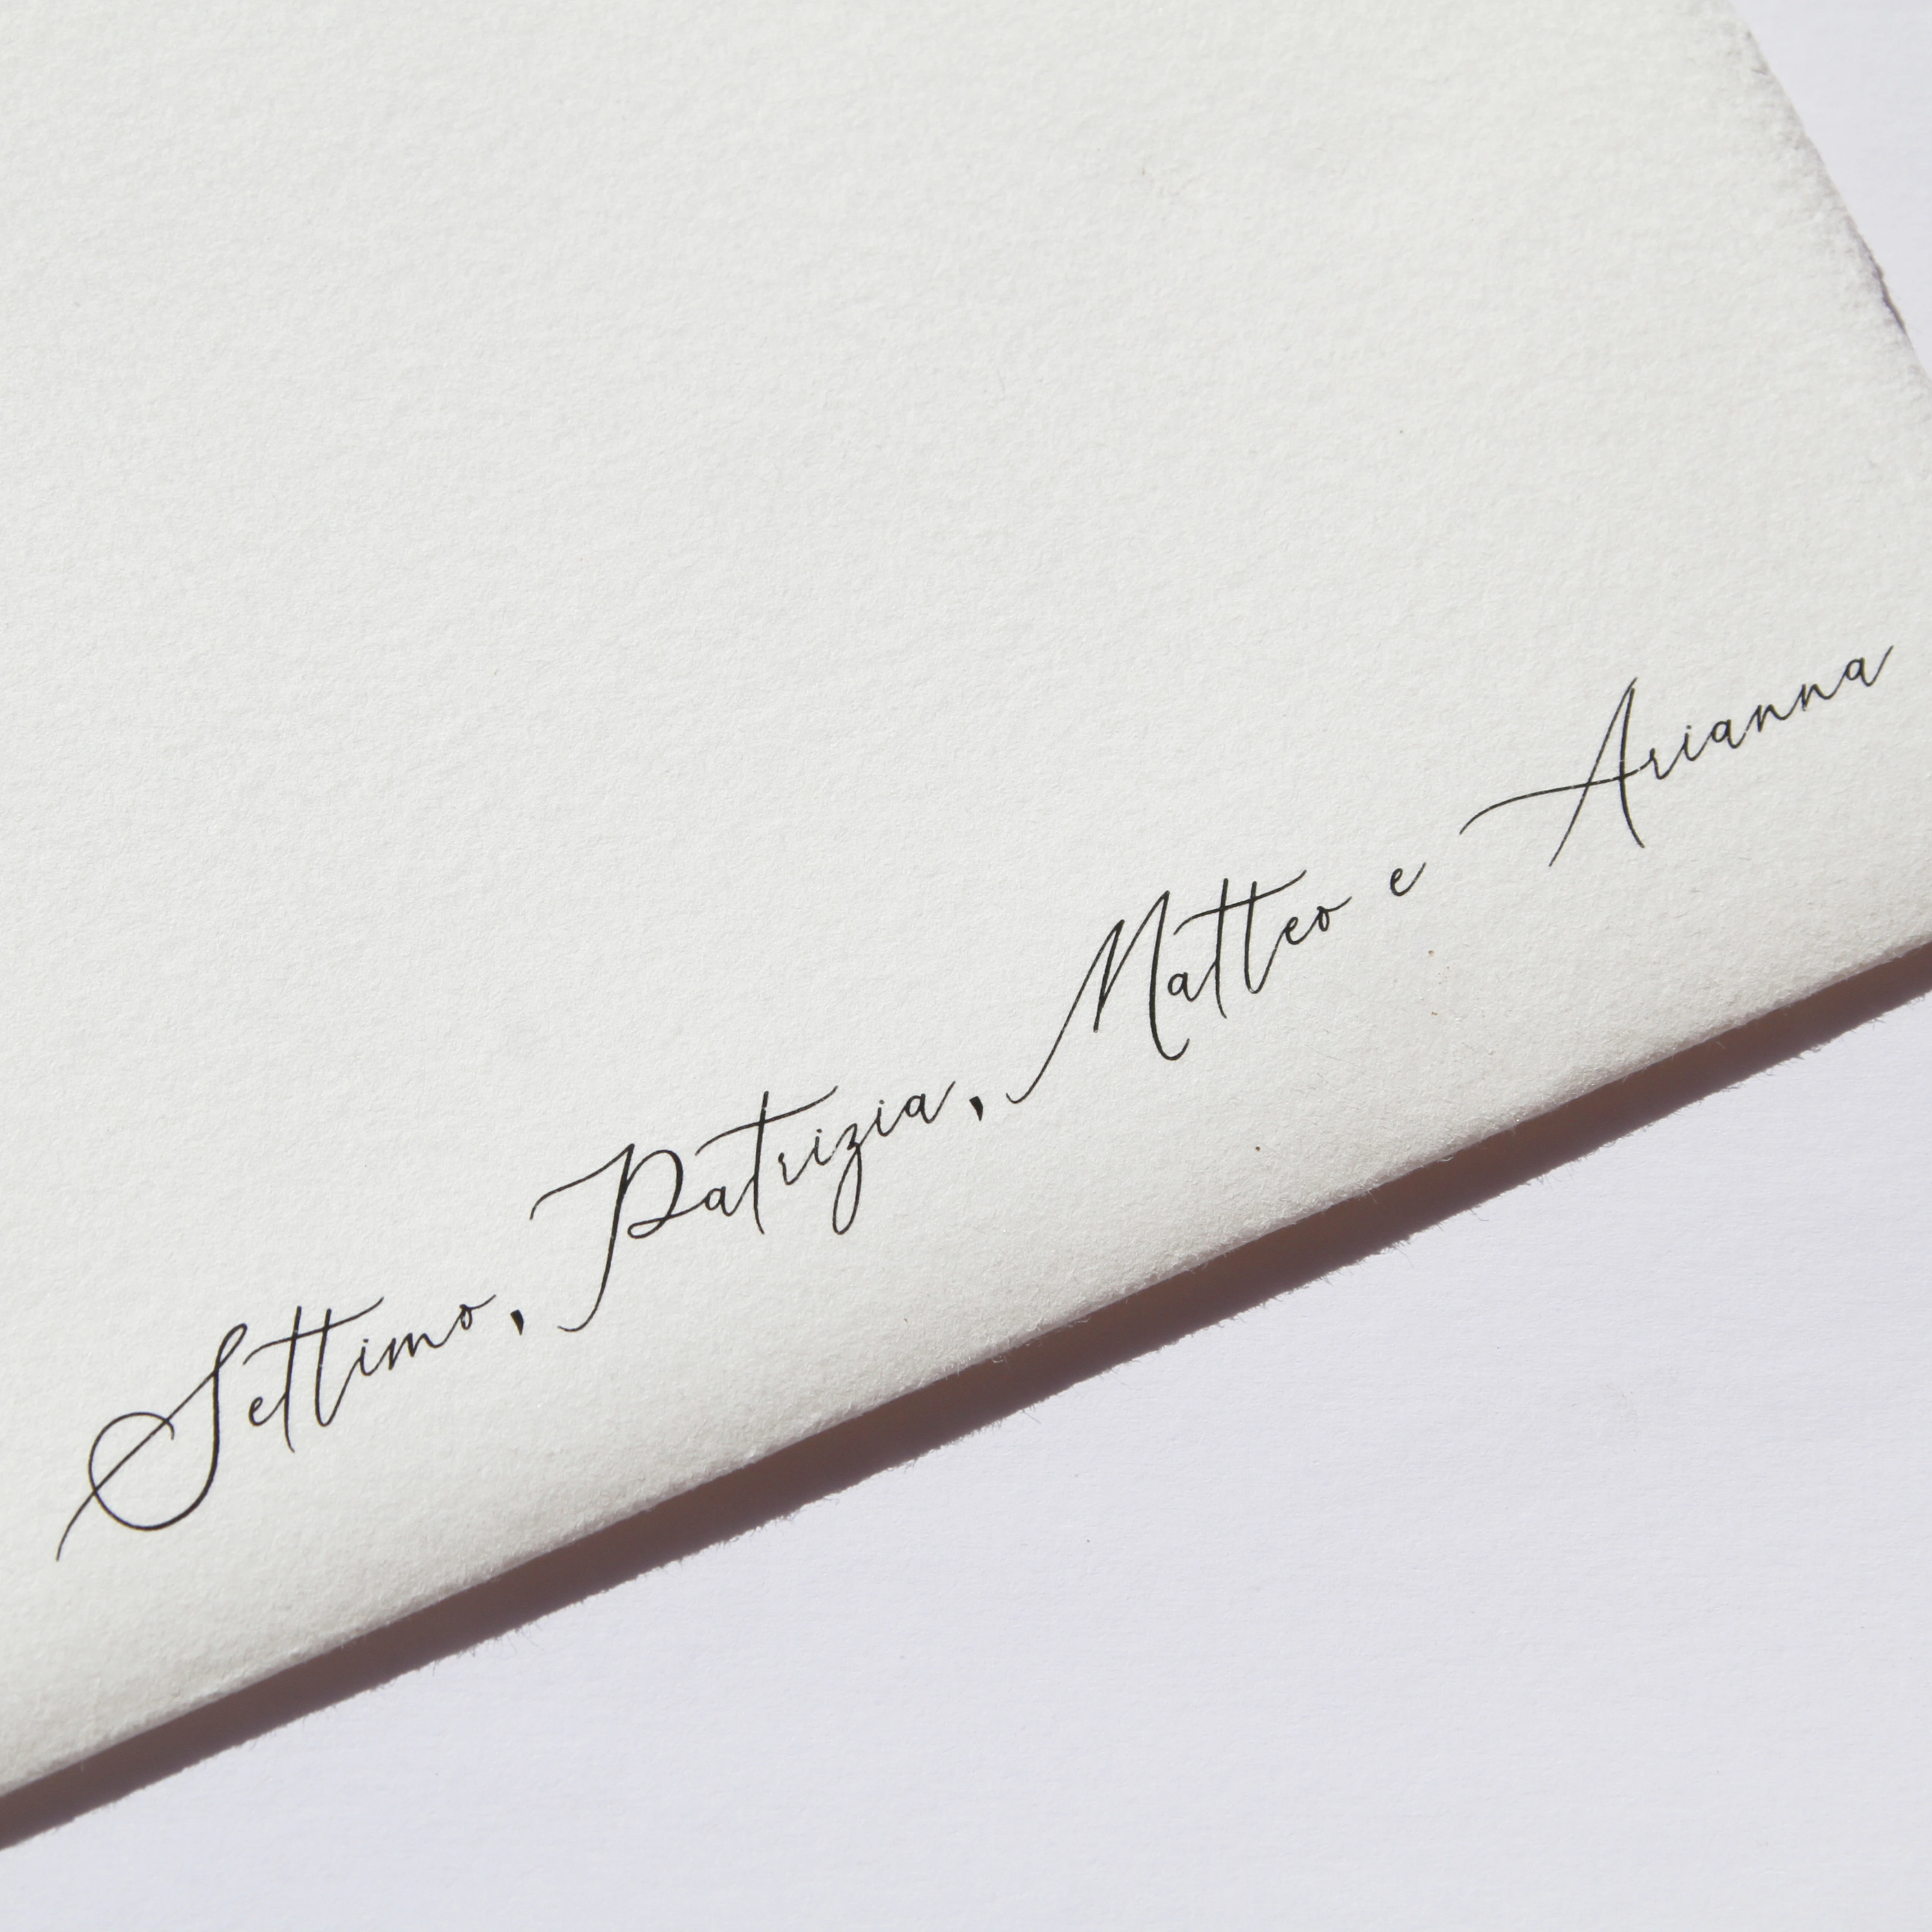 Settimo, Patrizia, Matteo e Arianna